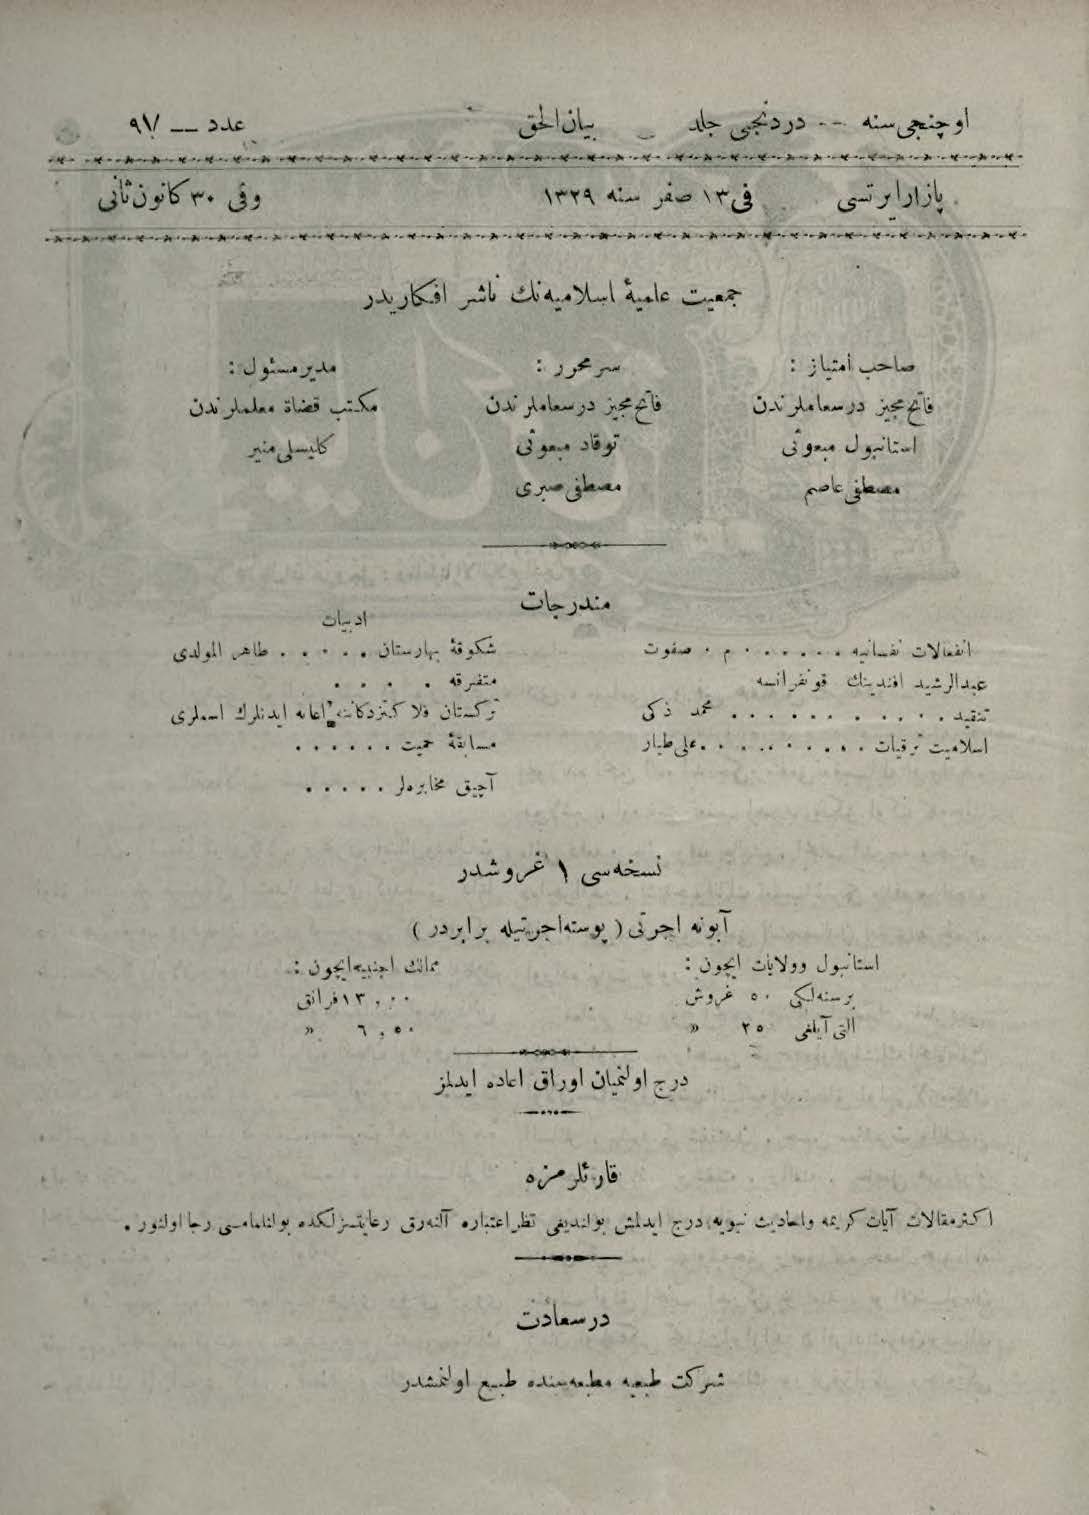 اوچنجی سنه — دردنجی جلد بیان‌الحق عدد — ۹۷
پازار ایرتسی فی ۱۳ صفر سنه ۱۳۲۹ وفی ۳۰ کانون ثانی
جمعیت علمیهٔ اسلامیه‌نك ناشر افکاریدر
صاحب امتیاز :
فاتح مجیز درسعاملرندن
استانبول مبعوثی
مصطفی عاصم
سر محرر :
فاتح مجیز درسعاملرندن
توقاد مبعوثی
مصطفی صبری
مدیر مسئول :
مکتب قضاة معلملرندن
کلیسلی منیر
مندرجات
انفعالات نفسانیه . . . . . . م . صفوت
عبدالرشید افندینك قونفرانسه
تنقید . . . . . . . . . . محمد ذکی
اسلامیت ترقیات . . . . . . . . . علی طیار
ادبیات
شکوفهٔ بهارستان . . . . . طاهر المولدی
متفرقه . . . .
ترکستان فلاکتزدکاننه اعانه ایدنلرك اسملری
مسابقهٔ حمیت . . . . . .
آچیق مخابره‌لر . . . . .
نسخه‌سی ۱ غروشدر
آبونه اجرتی ( پوسته اجرتیله برابردر )
استانبول وولایات ایچون :
برسنه‌لکی ۵۰ غروش
التی آیلغی ۲۵ »
ممالك اجنبیه ایچون :
۱۳,۰۰ فرانق
٦,۵۰ »
درج اولنمیان اوراق اعاده ایدلمز
قارئلرمزه
اکثر مقالات آیات کریمه واحادیث نبویه درج ایدلمش بولندیغی نظر اعتباره آلنه‌رق رعایتسزلکده بولنلمامسی رجا اولنور .
درسعادت
شرکت طبعیه مطبعه‌سنده طبع اولنمشدر